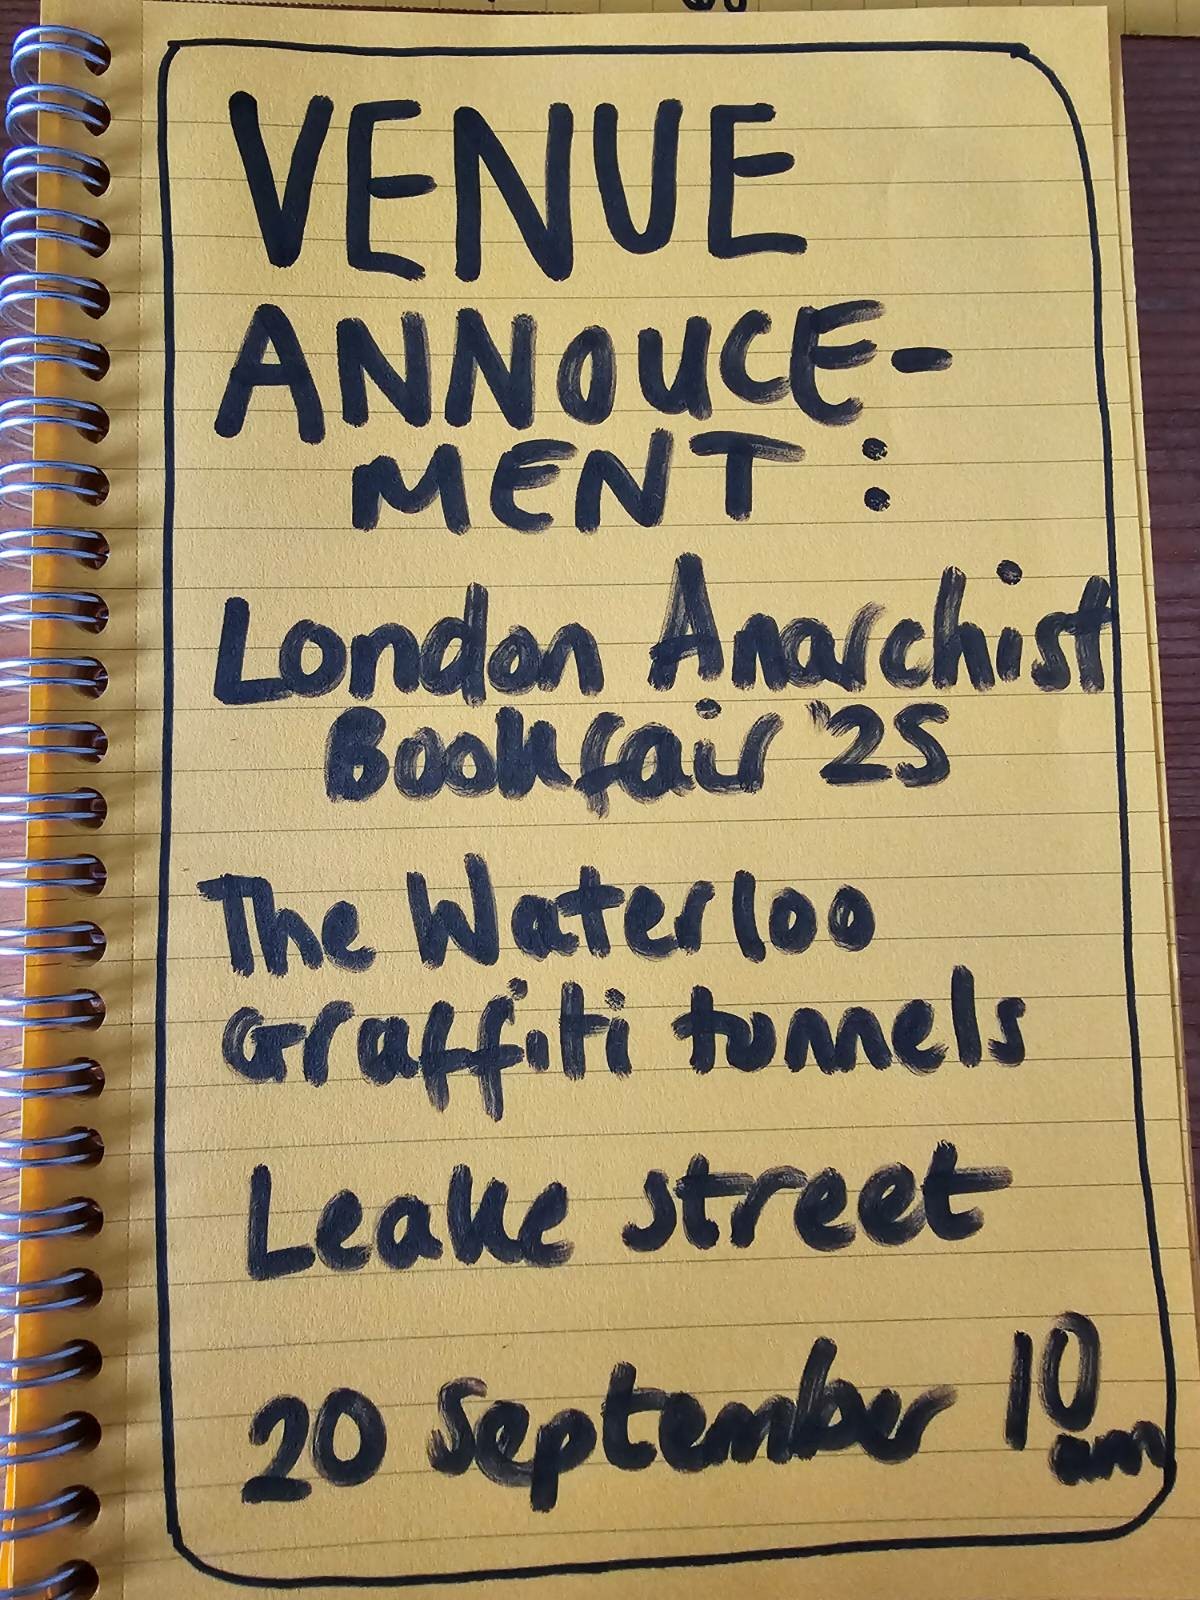 VENUE
ANNOUCE-
MENT:
London Anarchist
Bookfair '25
The Waterloo
Graffiti tunnels
Leake street
20 September 10
am